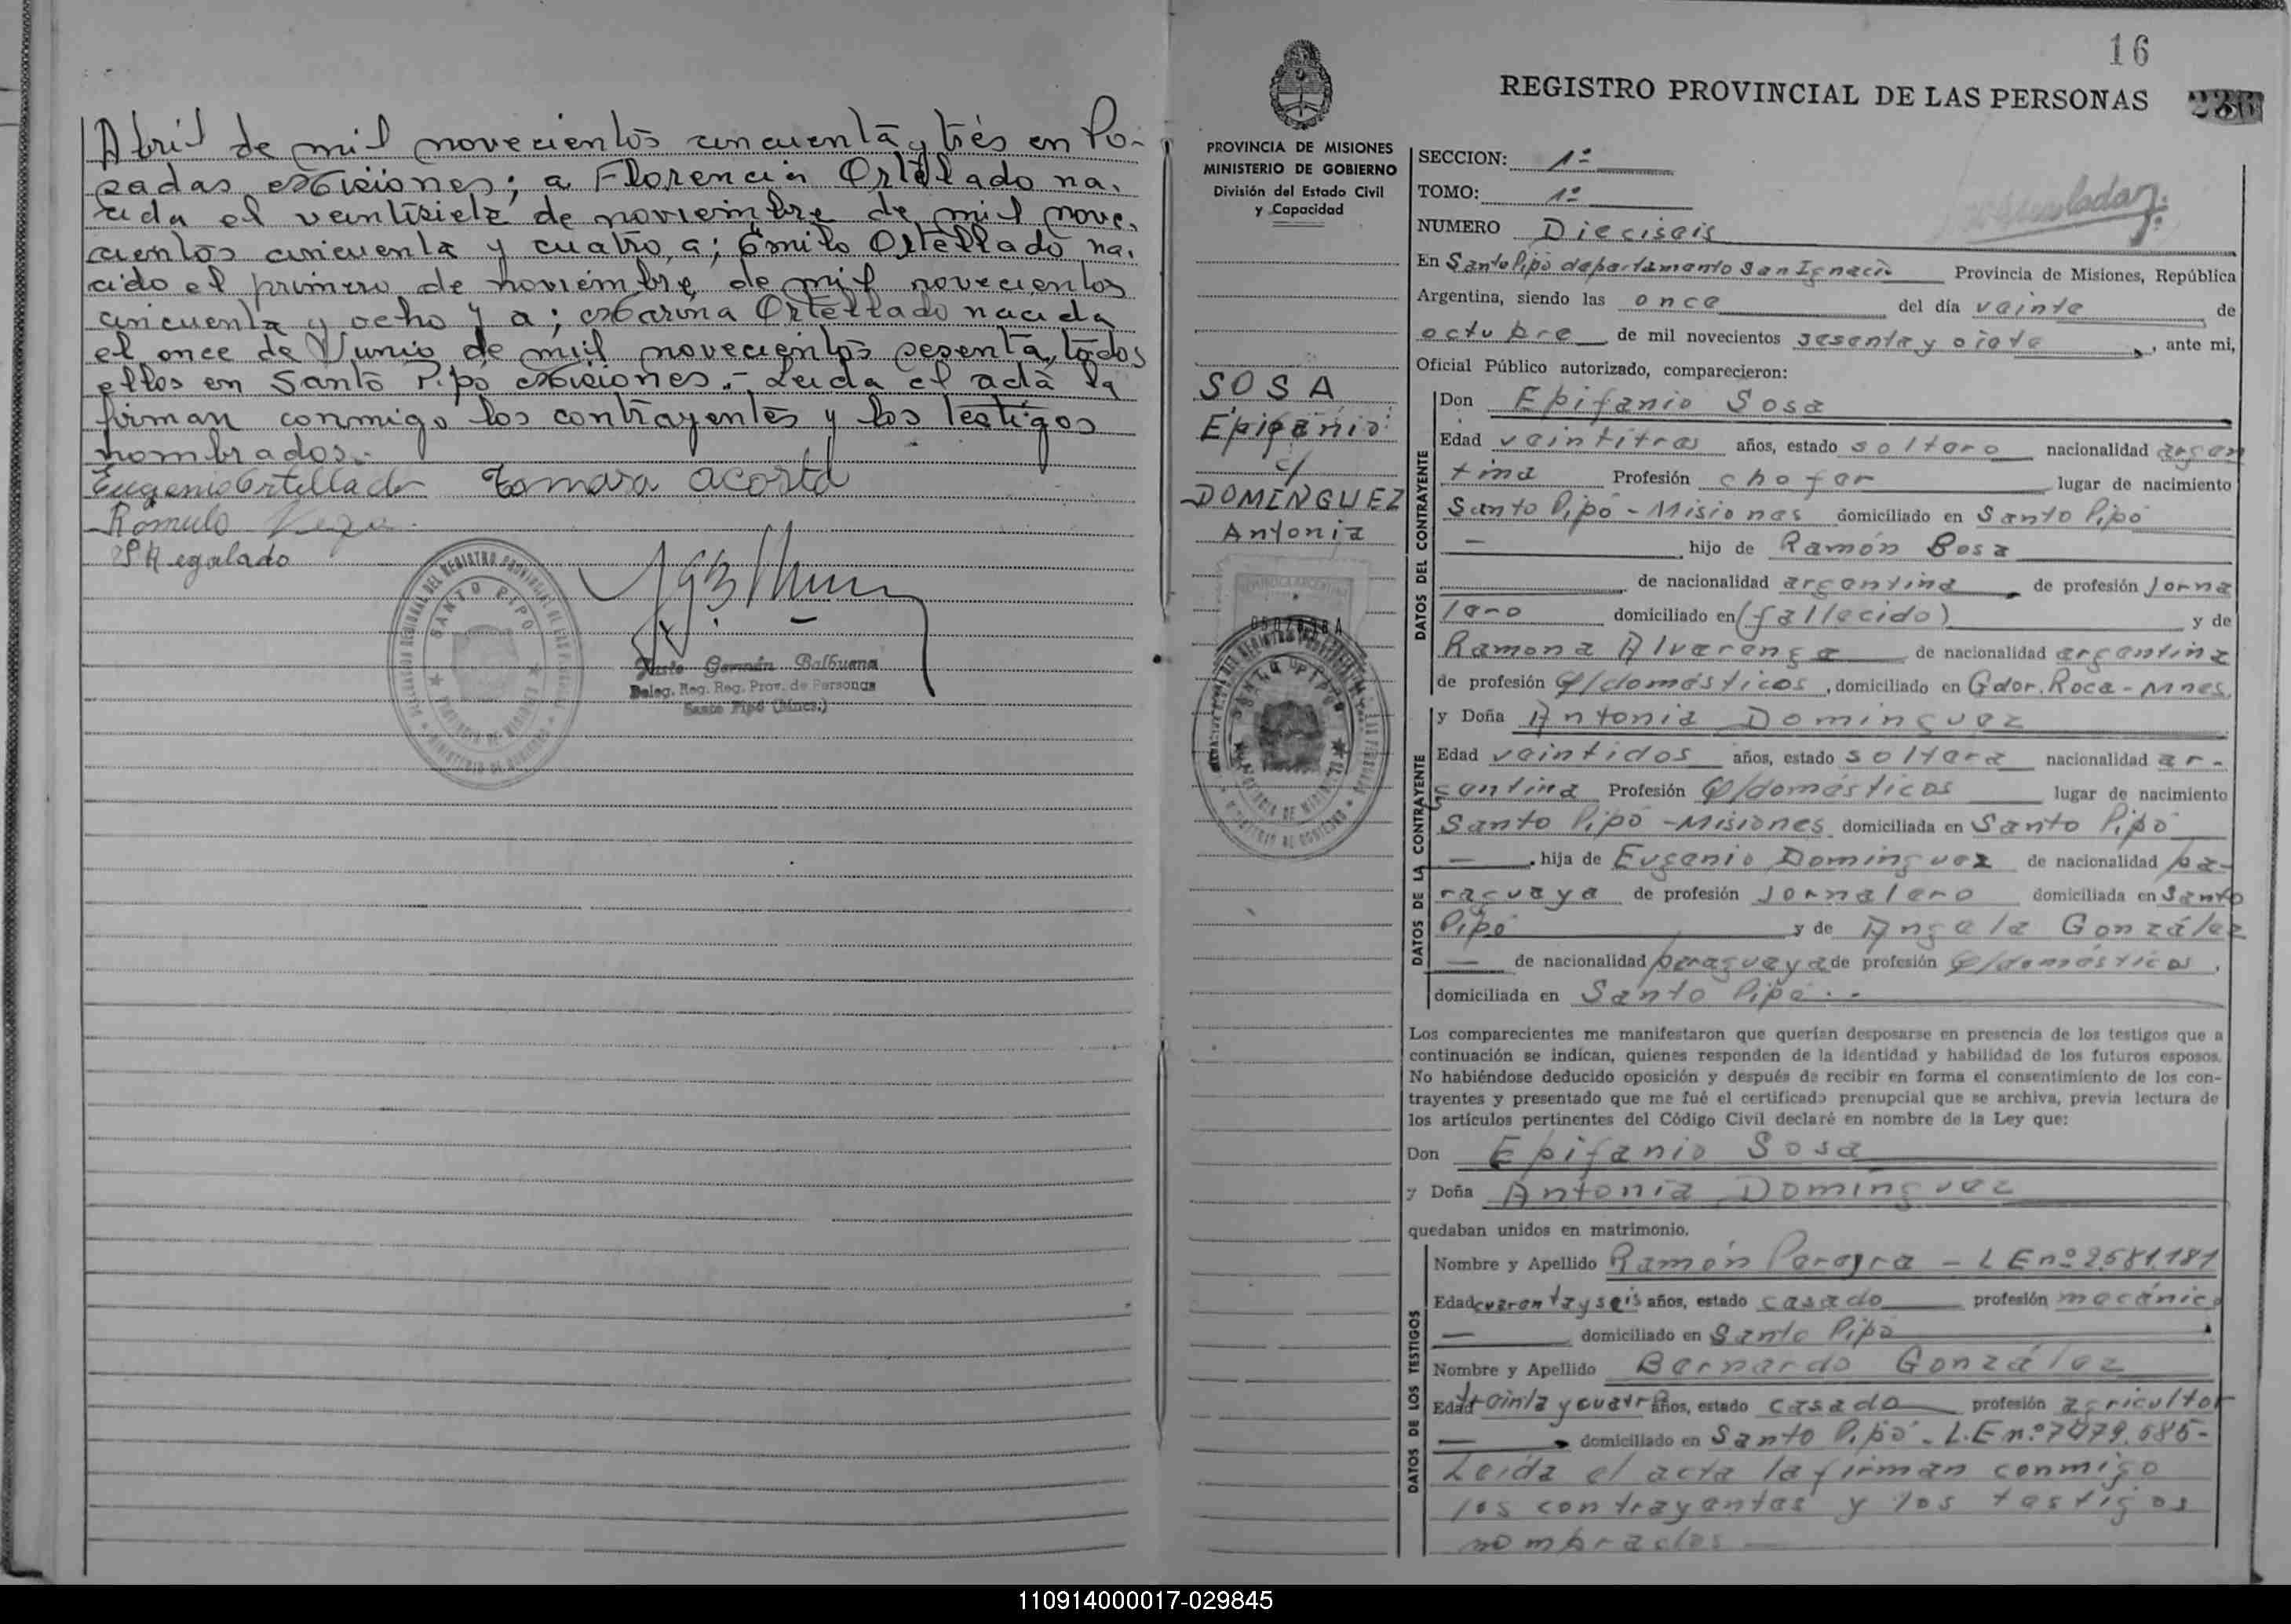 Abril de mil novecientos cincuenta y trés en Po-
sadas, Misiones; a Florencia Ortellado na,
cida el veintisiete de noviembre de mil nove,
cientos cincuenta y cuatro, a; Emilo Ortellado na,
cido el primero de noviembre de mil novecientos
cincuenta y ocho y a; Marina Ortellado nacida
el once de Junio de mil novecientos sesenta, todos
ellos en Santo Pipó Misiones.- Leida el acta la
firman conmigo los contrayentes y los testigos
nombrados.-
Eugenio Ortellado Tomasa Acosta
Romulo Vega.
Regalado
DELEGACION REGIONAL DEL REGISTRO PROVINCIAL DE LAS PERSONAS
SANTO PIPO
PROVINCIA DE MISIONES
MINISTERIO DE GOBIERNO
Justo Germán Balbuena
Deleg. Reg. Reg. Prov. de Personas
Santo Pipó (Mnes.)
16
REGISTRO PROVINCIAL DE LAS PERSONAS
236
PROVINCIA DE MISIONES
MINISTERIO DE GOBIERNO
División del Estado Civil
y Capacidad
SOSA
Epifanio
c/
DOMINGUEZ
Antonia
REPUBLICA ARGENTINA
SANTO PIPO
MINISTERIO DE GOBIERNO
SECCION: 1ª
TOMO: 1º
NUMERO Dieciseis
En Santo Pipó departamento San Ignacio Provincia de Misiones, República
Argentina, siendo las once del día veinte de
octubre de mil novecientos sesenta y siete, ante mi,
Oficial Público autorizado, comparecieron:
DATOS DEL CONTRAYENTE
Don Epifanio Sosa
Edad veintitres años, estado soltero nacionalidad argen
tina Profesión chofer lugar de nacimiento
Santo Pipó - Misiones domiciliado en Santo Pipó
— hijo de Ramón Sosa
de nacionalidad argentina de profesión Jorna
lero domiciliado en (fallecido) y de
Ramona Alvarenga de nacionalidad argentina
de profesión Q/domésticos, domiciliado en Gdor. Roca - Mnes.
DATOS DE LA CONTRAYENTE
y Doña Antonia Dominguez
Edad veintidos años, estado soltera nacionalidad ar-
gentina Profesión Q/domésticos lugar de nacimiento
Santo Pipó - Misiones domiciliada en Santo Pipó
—, hija de Eugenio Dominguez de nacionalidad pa-
raguaya de profesión Jornalero domiciliada en Santo
Pipó y de Angela González
— de nacionalidad paraguaya de profesión Q/domésticos,
domiciliada en Santo Pipó.-
Los comparecientes me manifestaron que querían desposarse en presencia de los testigos que a
continuación se indican, quienes responden de la identidad y habilidad de los futuros esposos.
No habiéndose deducido oposición y después de recibir en forma el consentimiento de los con-
trayentes y presentado que me fué el certificado prenupcial que se archiva, previa lectura de
los artículos pertinentes del Código Civil declaré en nombre de la Ley que:
Don Epifanio Sosa
y Doña Antonia Dominguez
quedaban unidos en matrimonio.
DATOS DE LOS TESTIGOS
Nombre y Apellido Ramón Pereyra - LE nº 2.581.181
Edad cuarenta y seis años, estado casado profesión mecánico
— domiciliado en Santo Pipó
Nombre y Apellido Bernardo González
Edad treinta y cuatro años, estado casado profesión agricultor
— domiciliado en Santo Pipó - L.E nº 7.479.685-
Leida el acta la firman conmigo
los contrayentes y los testigos
nombrados
110914000017-029845